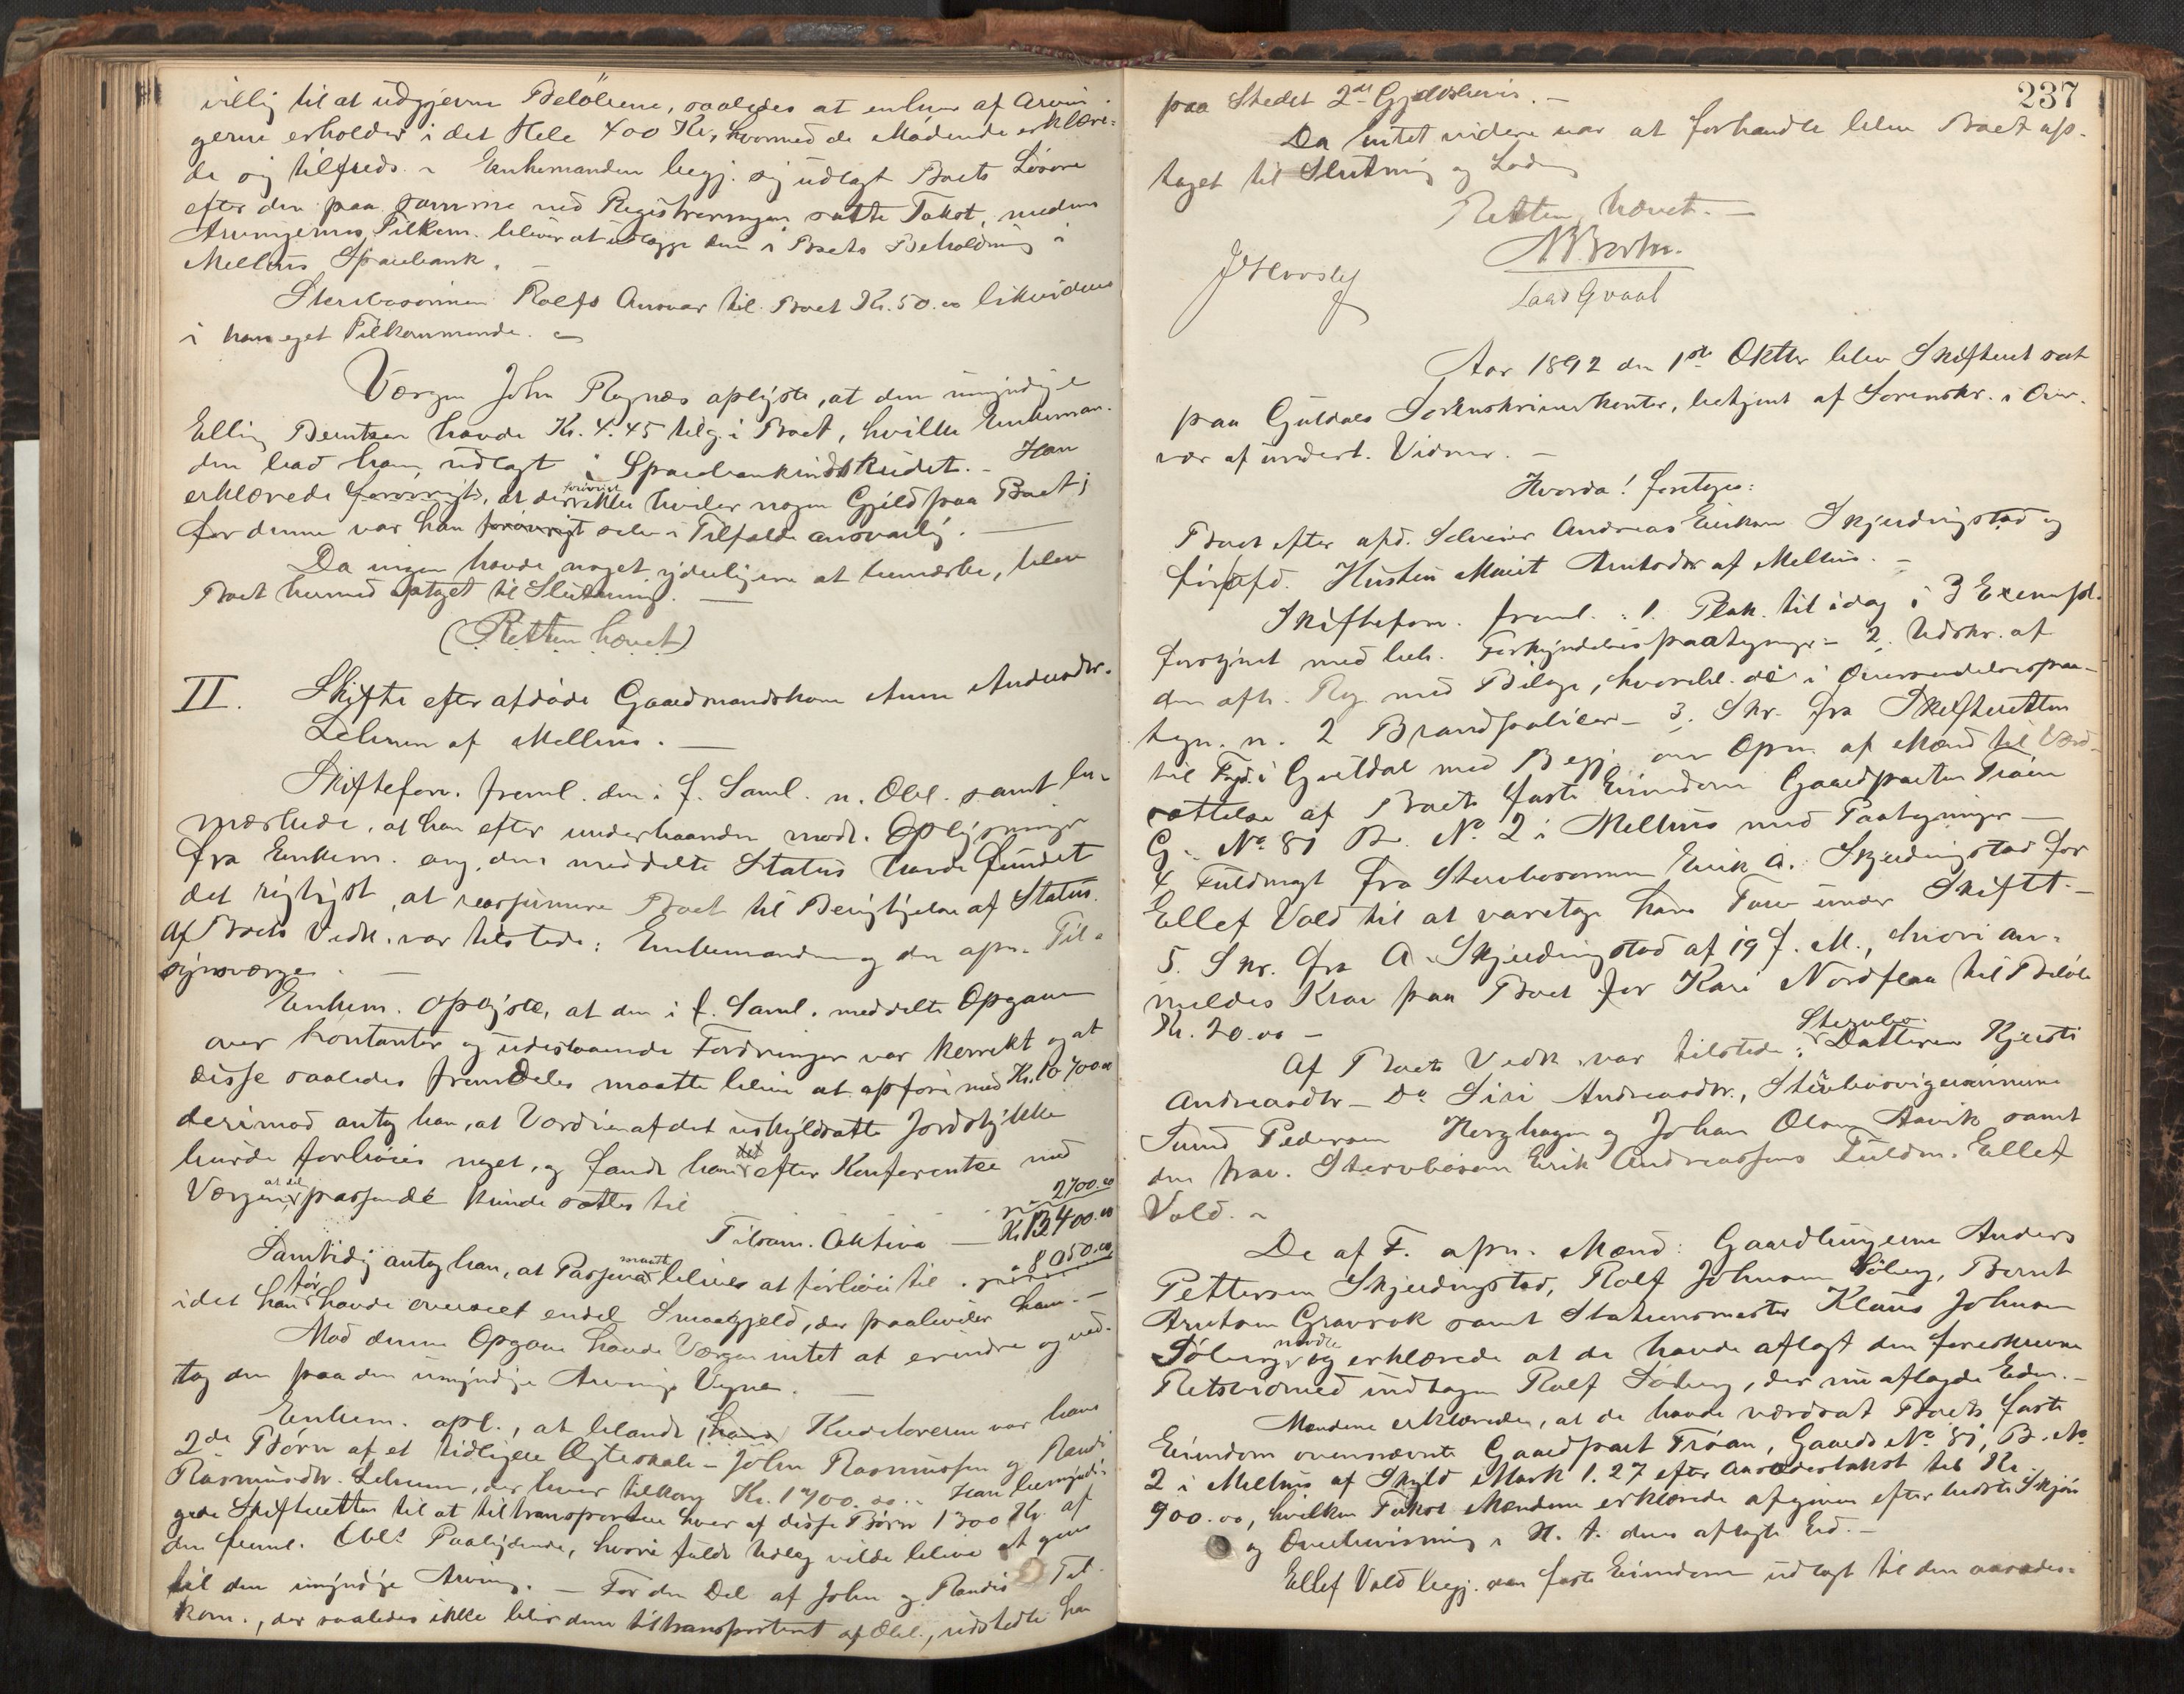 villig til at udgjevne Beløbene, saaledes at enhver af Arvin-
gerne erholder i det Hele 400 Kr., hvormed de Mødende erklære-
de sig tilfreds. Enkemanden begj. sig udlagt Boets Løsøre
efter den paa samme ved Registreringen satte Takst, medens
Arvingernes Tilkom. bliver at udlægge dem i Boets Beholdning i
Melhus Sparebank. —
Stervbosønnen Rolfs Ansvar til Boet Kr. 50.00 likvideres
i hans eget Tilkommende.
Værgen John Røgnæs oplyste, at den umyndige
Elling Berntsen havde Kr. 4.45 tilg. i Boet, hvilke Enkeman-
den bad ham udlagt i Sparebankindskudet. – Han
erklærede forøvrigt, at der forøvrigt ikke hviler nogen Gjeld paa Boet;
for denne var han forøvrigt selv i Tilfælde ansvarlig. —
Da ingen havde noget yderligere at bemærke, blev
Boet hermed optaget til Slutning. —
(Retten hævet)
II. Skifte efter afdøde Gaardmandskone Anne Andersdtr.
Lehnen af Melhus. —
Skifteforv. freml. den i f. Saml. n. Obl. samt be-
mærkede, at han efter underhaanden modt. Oplysninger
fra Enkem. ang. den meddelte Status havde fundet
det rigtigst, at reassumere Boet til Berigtigelse af Status.
Af Boets Vedk. var tilstede: Enkemanden og den opn. Til-
synsværge. —
Enkem. oplyste, at den i f. Saml. meddelte Opgave
over Kontanter og udestaaende Fordringer var korrekt og at
disse saaledes fremdeles maatte blive at opføre med Kr. 10700.00
derimod antog han, at Værdien af det uskyldsatte Jordstykke
burde forhøies noget, og fandt han det efter Konferentse med
Værgen at det passende kunde sættes til 2700.00
Tilsam. Aktiva — Kr. 13400.00
Samtidig antog han, at Passiva maatte blive at forhøie til 8050.00
idet han før havde overseet endel Smaagjeld, der paahviler ham. —
Mod denne Opgave havde Værgen intet at erindre og ved-
tog den paa den umyndige Arvings Vegne. —
Enkem. opl., at blandt hans Kreditorerne var hans
2de Børn af et tidligere Ægteskab – John Rasmussen og Randi
Rasmusdtr. Lehnen, der hver tilkom Kr. 1700.00. Han bemyndi-
gede Skifteretten til at tiltransportere hver af disse Børn 1300 Kr. af
den freml. Obls Paalydende, hvori fuldt Udlæg vilde blive at give
til den umyndige Arving. — For den Del af John og Randis Til-
kom., der saaledes ikke blev dem tiltransporteret af Obl., udstedte han
237
paa Stedet 2de Gjeldsbevis. —
Da intet videre var at forhandle blev Boet op-
taget til Slutning og Lod
Retten hævet. —
Aar 1892 den 1ste Oktbr blev Skifteret sat
paa Guldals Sorenskriverkontor, betjent af Sorenskr. i Over-
vær af undert. Vidner. —
Hvorda! foretoges:
Boet efter afd. Selveier Andreas Eriksen Skjerdingstad og
før afd. Hustru Marit Arntsdtr af Melhus. —
Skifteforv. freml.: 1. Plak. til idag i 3 Exempl.
forsynet med beh. Forkyndelsespaategninger – 2. Udskr. af
den afh. Reg. med Bilage, hvoribl. de i Oversendelsespaa-
tegn. n. 2 Brandpolicer – 3. Skr. fra Skifteretten
til Fogd. i Guldal med Begj. om Opn. af Mænd til Værd-
sættelse af Boets faste Eiendom Gaardparten Trøen
G. No 81 B. No 2 i Melhus med Paategninger —
4. Fuldmagt fra Stervbosønnen Erik A. Skjerdingstad for
Ellef Vold til at varetage hans Tarv under Skiftet. —
5. Skr. fra A. Skjerdingstad af 19 f. M., hvori an-
meldes Krav paa Boet for Kari Nordflaa til Beløb
Kr. 20.00 —
Af Boets Vedk. var tilstede: Stervbo- Datteren Kjersti
Andreasdtr – Do Siri Andreasdtr., Stervbosvigersønnerne
Pedersen og Johan Olsen samt
den frav. Stervbosøn Erik Andreassens Fuldm. Ellef
Vold. –
De af F. opn. Mænd: Gaardbrugerne Anders
Pettersen Skjerdingstad, Rolf Johnsen Søberg, Bernt
Arntsen Gravrok samt Stationsmester Klaus Johnsen
Søberg mødte og erklærede at de havde aflagt den foreskrevne
Retsvidneed undtagen Rolf Søberg, der nu aflagde Eden. —
Mændene erklærede, at de havde værdsat Boets faste
Eiendom ovennævnte Gaardpart Trøen, Gaards No 81, B. No
2 i Melhus af Skyld Mark 1.27 efter Aasædestakst til Kr.
900.00, hvilken Takst Mændene erklærede afgiven efter bedste Skjøn
og Overbevisning i H. t. deres aflagte Ed. —
Ellef Vold begj. den faste Eiendom udlagt til den aasædes-